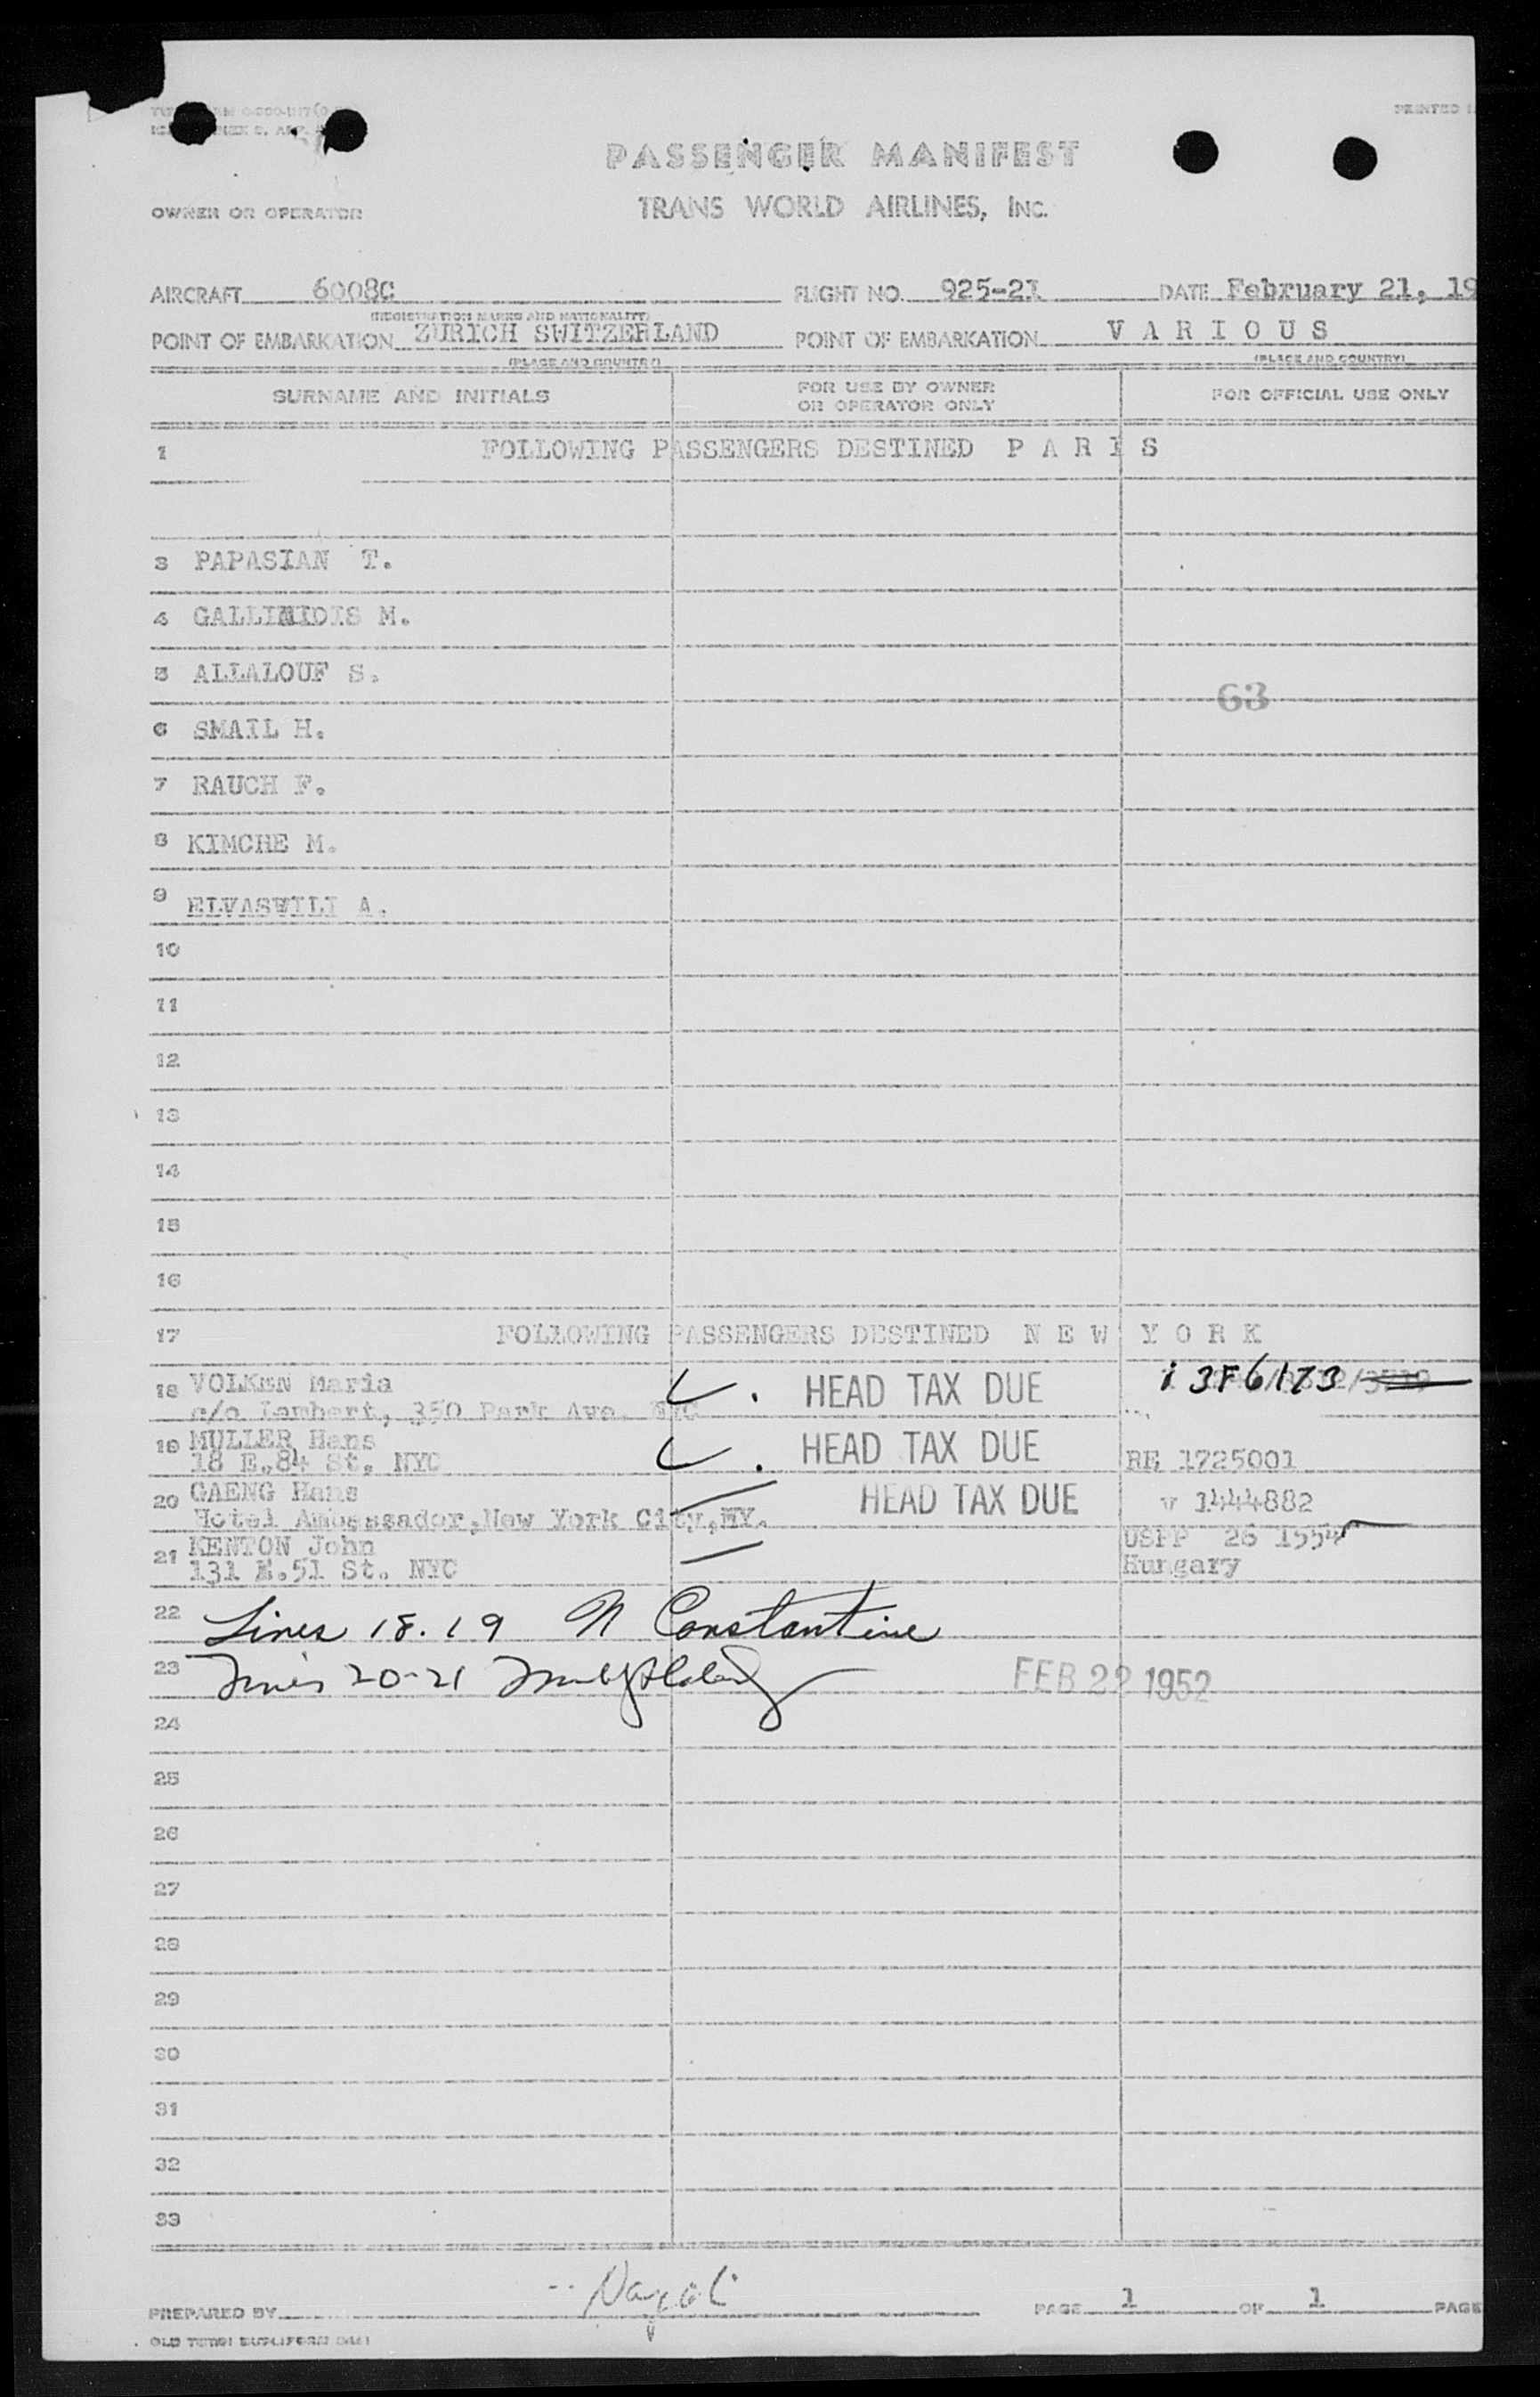 PRINTED
PASSENGER MANIFEST
OWNER OR OPERATOR TRANS WORLD AIRLINES, INC.
AIRCRAFT 6008C FLIGHT NO. 925-21 DATE February 21, 19
(REGISTRATION MARKS AND NATIONALITY)
POINT OF EMBARKATION ZURICH SWITZERLAND POINT OF EMBARKATION VARIOUS
(PLACE AND COUNTRY) (PLACE AND COUNTRY)
SURNAME AND INITIALS FOR USE BY OWNER OR OPERATOR ONLY FOR OFFICIAL USE ONLY
1 FOLLOWING PASSENGERS DESTINED P A R I S
3 PAPASIAN T.
4 M.
5 ALLALOUF S.
63
6 SMAIL H.
7 RAUCH F.
8 KIMCHE M.
9 ELVASWILI A.
10
11
12
13
14
15
16
17 FOLLOWING PASSENGERS DESTINED N E W Y O R K
18 VOLKEN Maria HEAD TAX DUE
c/o Lambert, 350 Park Ave. NYC
19 MULLER Hans HEAD TAX DUE
18 E.84 St. NYC RE 1725001
20 GAENG Hans HEAD TAX DUE v 1444882
Hotel Ambassador, New York City, NY.
21 KENTON John USPP 26 1554
131 E.51 St. NYC Hungary
22 Lines 18.19 N Constantine
23 Lines 20-21 FEB 22 1952
24
25
26
27
28
29
30
31
32
33
PREPARED BY PAGE 1 OF 1 PAGE